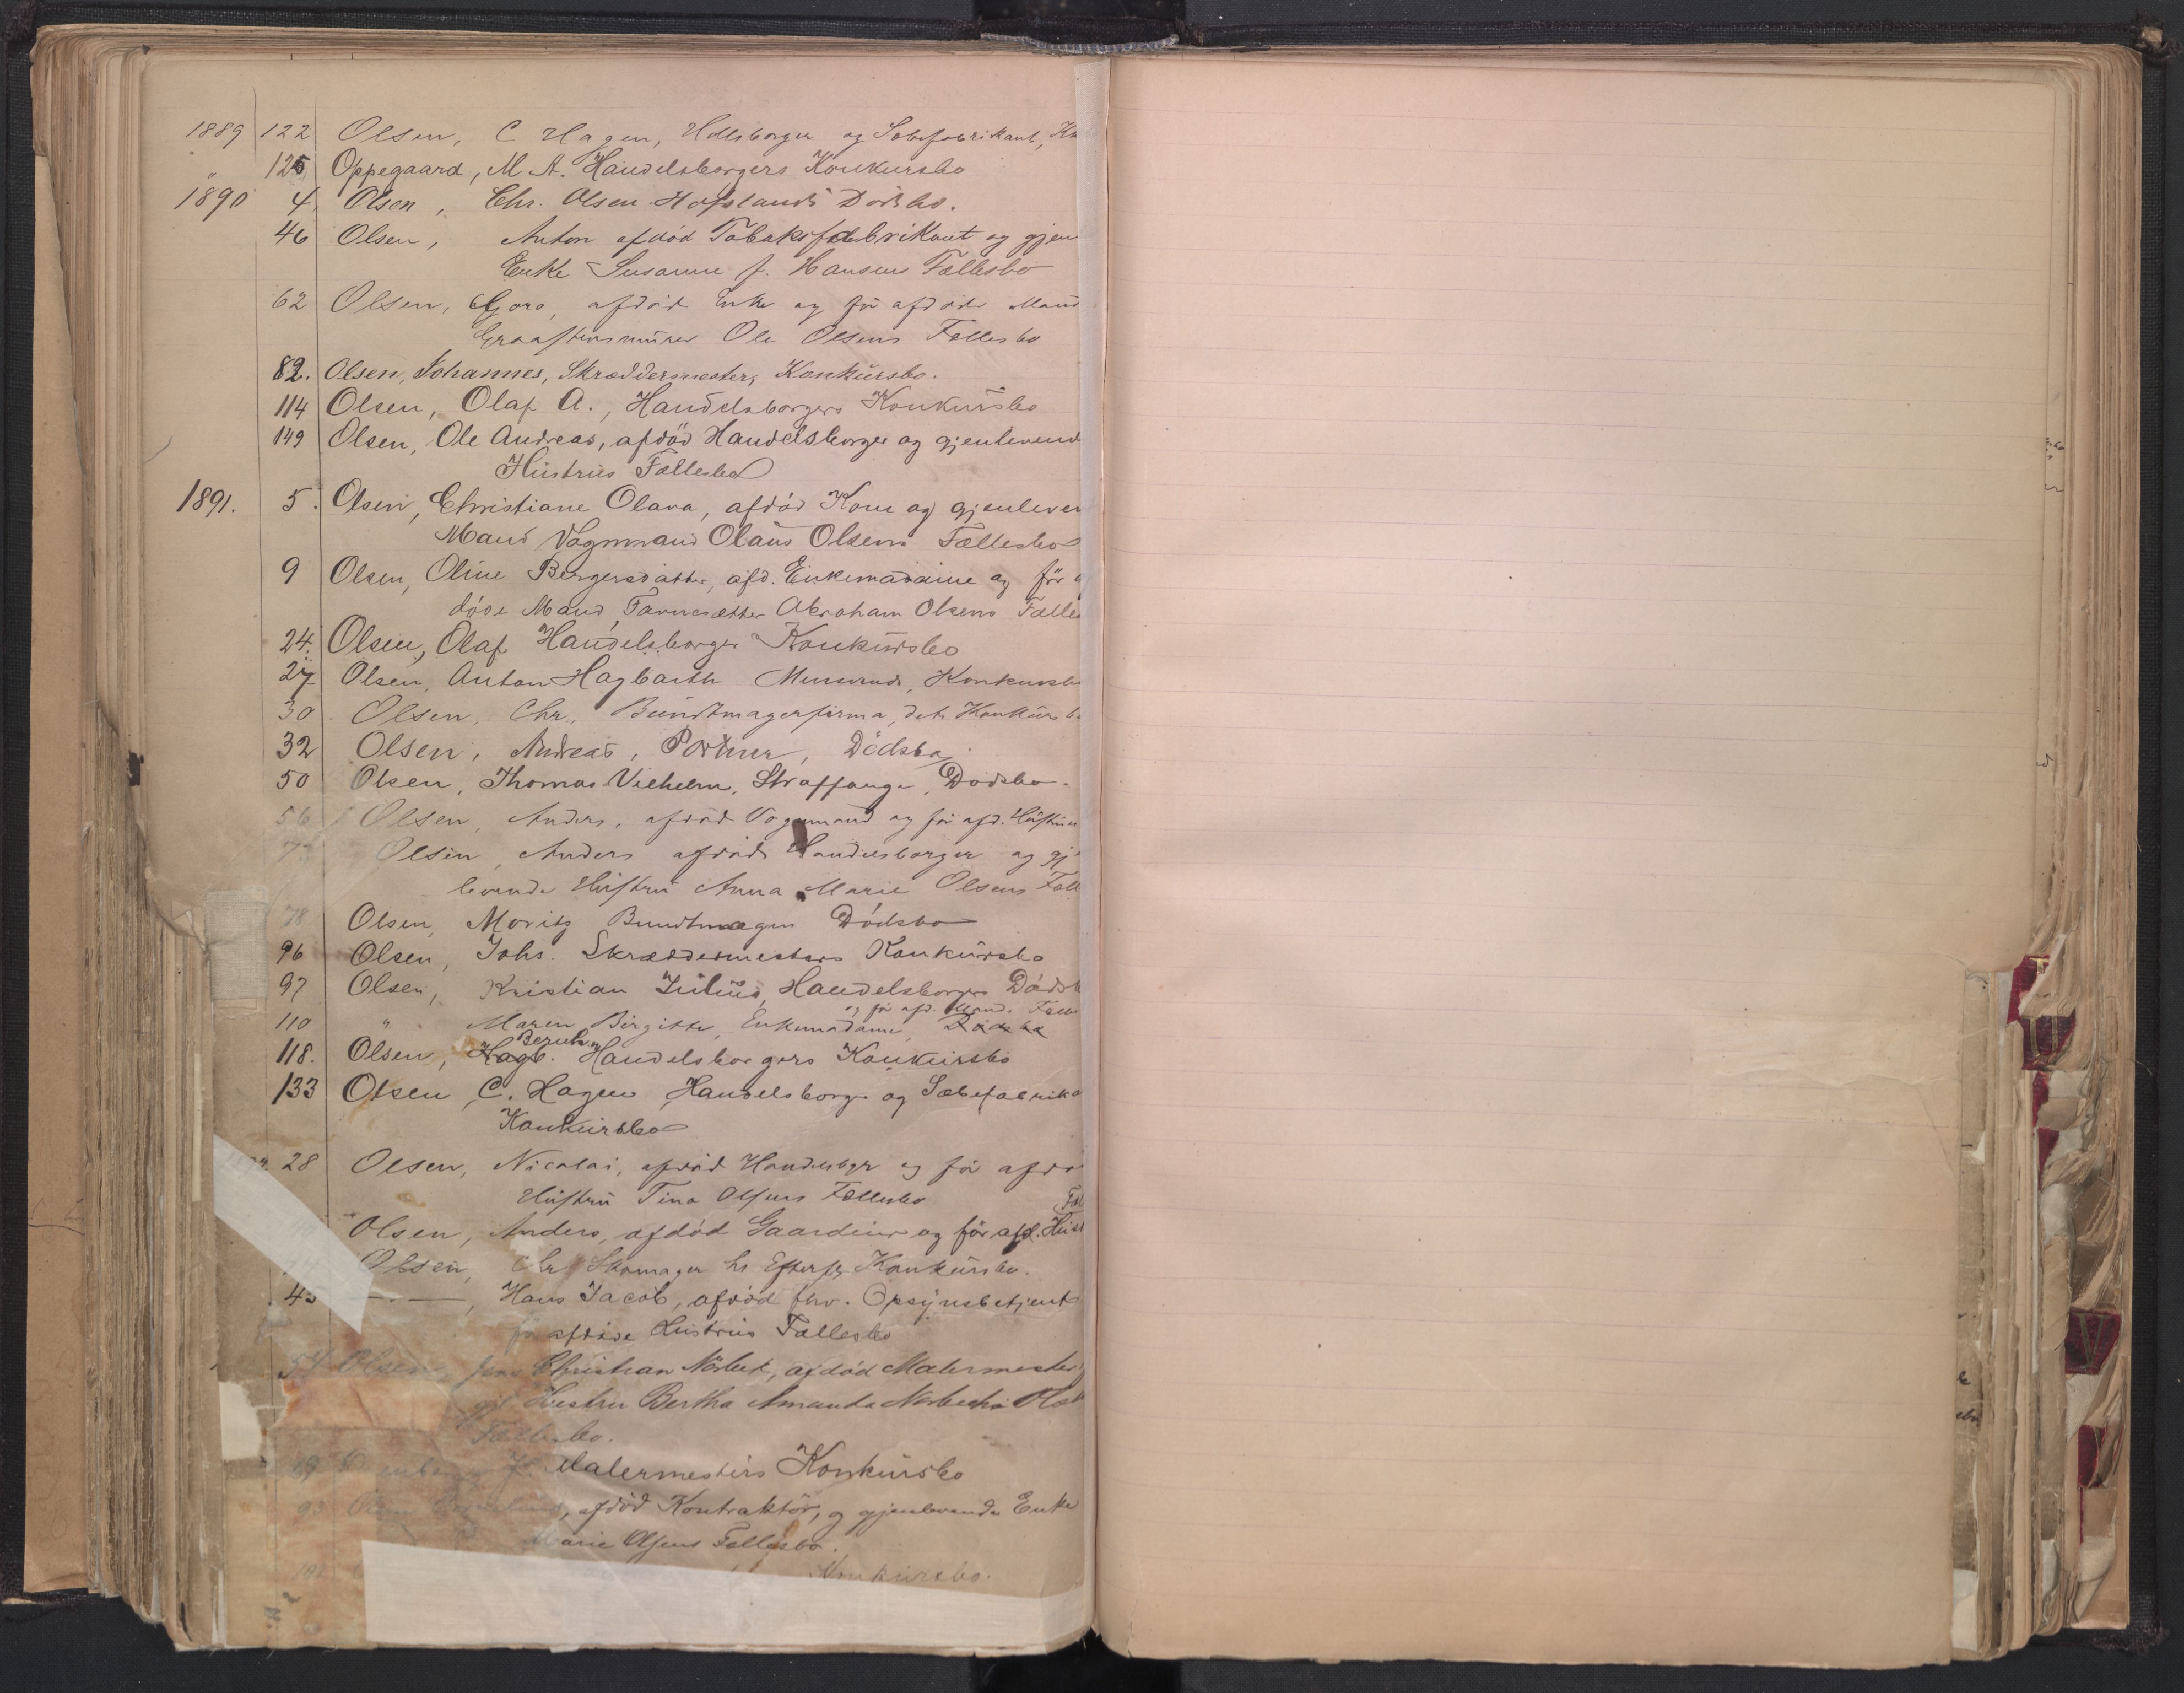 1889 122 Olsen, C Hagen, Hdlsborger og Sæbefabrikant, Ko
" 125 Oppegaard, M. A. Handelsborgers Konkursbo
1890 4, Olsen, Chr. Olsen Hofslands Dödsbo.
46 Olsen, Anton afdöd Tobaksfabrikant og gjen
Enke Susanne f. Hansens Fællesbo
62 Olsen, Gjoro, afdöd Enke og för afdöde Mand
Graastensmürer Ole Olsens Fællesbo
82. Olsen, Johannes, Skræddermester, Konkürsbo.
114 Olsen, Olaf A., Handelsborgers Konkürsbo
149 Olsen, Ole Andreas, afdöd Handelsborger og gjenlevend
Hüstrüs Fællesbo
1891. 5. Olsen, Christiane Olava, afdöd Kone og gjenleven
Mand Vognmand Olaüs Olsens Fællesbo
9 Olsen, Oline Bergersdatter, afd. Enkemadame og för
döde Mand, Abraham Olsens Fælles
24. Olsen, Olaf Handelsborger Konkürsbo
27 Olsen, Anton Hagbarth Konkursbo
30 Olsen, Chr., Bündtmagerfirma, dets Konkürsbo
32 Olsen, Andreas, Portner, Dödsbo
50 Olsen, Thomas Vilhelm, Straffange, Dödsbo.
56 Olsen, Anders, afdöd Vognmand og för afd. Hüstrus
Olsen, Anders afdöd Handelsborger og gj
levende Hüstrü Anna Marie Olsens Fæll
78 Olsen, Moritz Bundtmager Dödsbo
96 Olsen, Johs. Skræddermesters Konkürsbo
97 Olsen, Kristian Julius, Handelsborgers Dödsb
og för afd. Mands Fælle
110 " Maren Birgitte, Enkemadame, Dödsbo
118. Olsen, Hagb. Handelsborgers Konkürsbo
133 Olsen C. Hagen Handelsborger og Sæbefabrika
Konkürsbo
28 Olsen, Nicolai, afdöd Handelsbgr og för afdö
Hüstrü Tina Olsens Fællesbo
Olsen, Anders, afdöd Gaardeier og för afd. Hüst
Olsen, Chr Skomager hs Efterflg Konkürsbo.
43 — " —, Hans Jacob, afdöd fhv. Opsynsbetjent
för afdöde Hüstrüs Fællesbo
54 Olsen, Christian Nörbek, afdöd Malermester
gjl Hustru Bertha Amanda Nörbechs
Fællesbo.
Malermesters Konkürsbo
93 Olsen, afdöd Kontraktör, og gjenlevende Enke
Marie Olsens Fællesbo.
Konkürsbo.